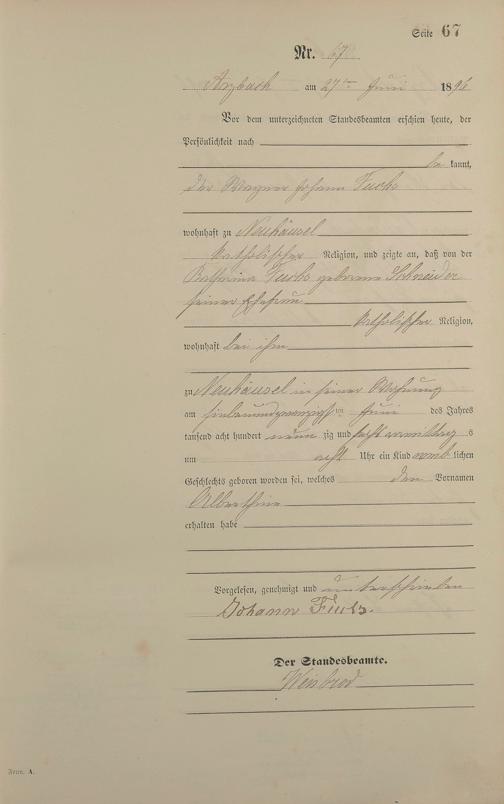 Seite 67
Nr. 67
Arzbach am 27ten Juni 1896
Vor dem unterzeichneten Standesbeamten erschien heute, der
Persönlichkeit nach
be kannt,
der Wagner Johann Fuchs
wohnhaft zu Neuhäusel
katholischer Religion, und zeigte an, daß von der
Katharina Fuchs geborene Schneider
seiner Ehefrau
katholischer Religion,
wohnhaft bei ihm
zu Neuhäusel in seiner Wohnung
am einundzwanzigsten Juni des Jahres
tausend acht hundert neun zig und sechs vormittag s
um acht Uhr ein Kind weib lichen
Geschlechts geboren worden sei, welches den Vornamen
Albertine
erhalten habe
Vorgelesen, genehmigt und unterschrieben
Johann Fuchs.
Der Standesbeamte.
Weisbrod
Form. A.